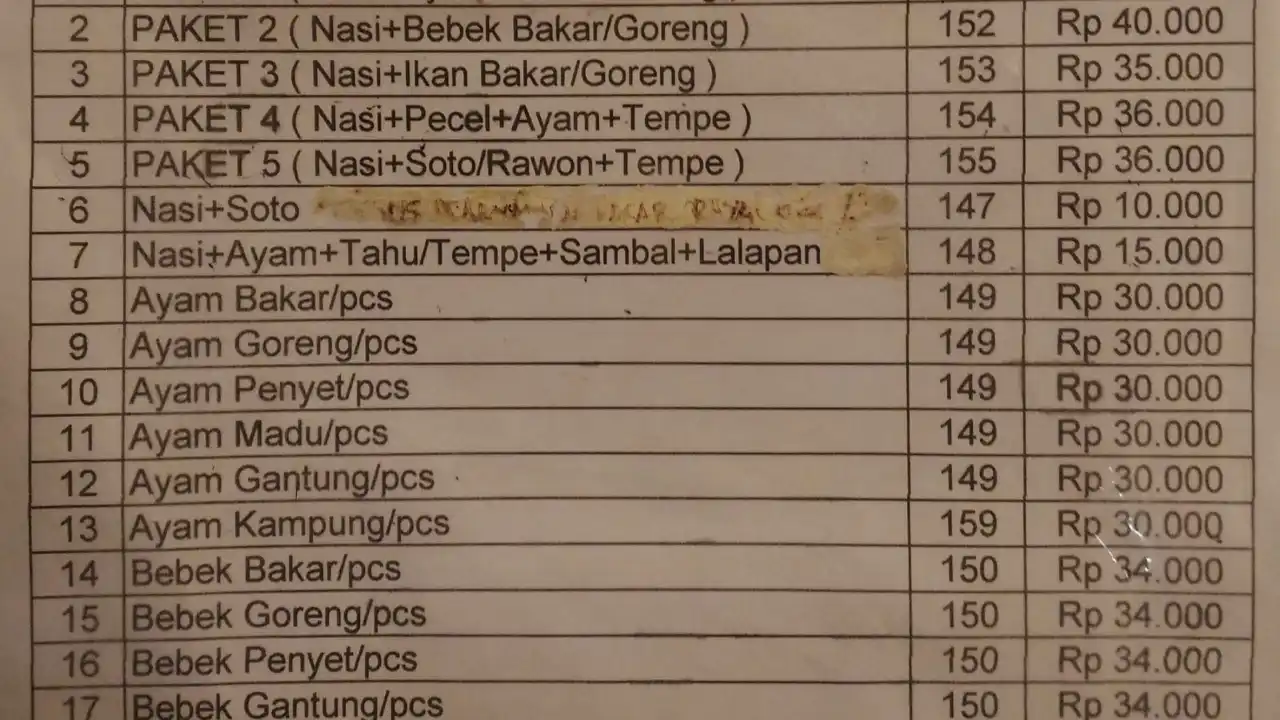 2 PAKET 2 ( Nasi+Bebek Bakar/Goreng ) 152 Rp 40.000
3 PAKET 3 ( Nasi+Ikan Bakar/Goreng ) 153 Rp 35.000
4 PAKET 4 ( Nasi+Pecel+Ayam+Tempe ) 154 Rp 36.000
5 PAKET 5 ( Nasi+Soto/Rawon+Tempe ) 155 Rp 36.000
6 Nasi+Soto 147 Rp 10.000
7 Nasi+Ayam+Tahu/Tempe+Sambal+Lalapan 148 Rp 15.000
8 Ayam Bakar/pcs 149 Rp 30.000
9 Ayam Goreng/pcs 149 Rp 30.000
10 Ayam Penyet/pcs 149 Rp 30.000
11 Ayam Madu/pcs 149 Rp 30.000
12 Ayam Gantung/pcs 149 Rp 30.000
13 Ayam Kampung/pcs 159 Rp 30.000
14 Bebek Bakar/pcs 150 Rp 34.000
15 Bebek Goreng/pcs 150 Rp 34.000
16 Bebek Penyet/pcs 150 Rp 34.000
17 Bebek Gantung/pcs 150 Rp 34.000